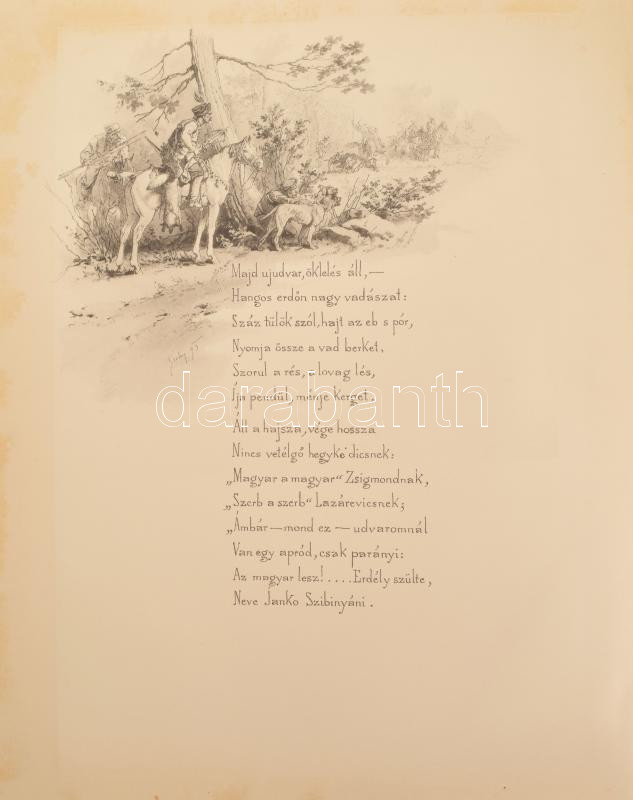 Majd ujudvar, öklelés áll, —
Hangos erdőn nagy vadászat:
Száz tülök szól, hajt az eb s pór,
Nyomja össze a vad berket.
Szorul a rés, a lovag lés,
Íja pendűl, ménje kerget.
Áll a hajsza, vége hossza
Nincs vetélgő hegyke dicsnek:
„Magyar a magyar“ Zsigmondnak,
„Szerb a szerb“ Lazárevicsnek;
„Ámbár — mond ez — udvaromnál
Van egy apród, csak parányi:
Az magyar lesz!.... Erdély szülte,
Neve Janko Szibinyáni.
darabanth